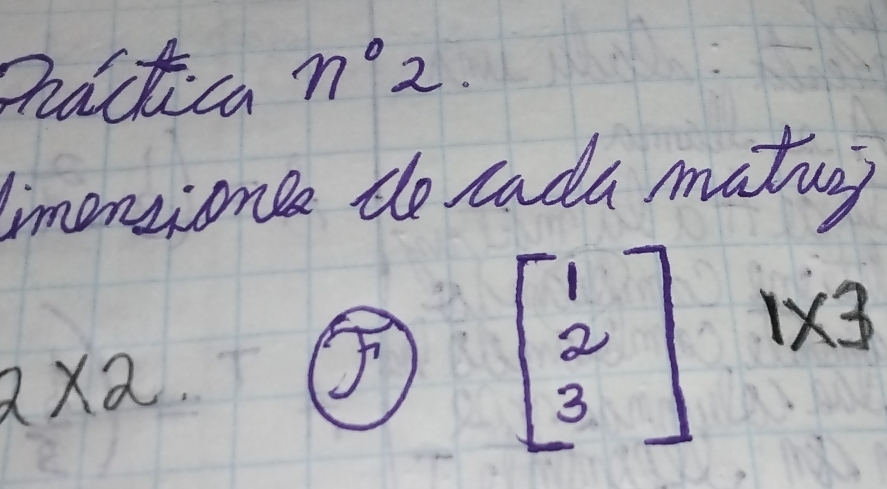 Práctica n° 2.
dimensiones de cada matriz
2x2. F [1 2 3] 1x3